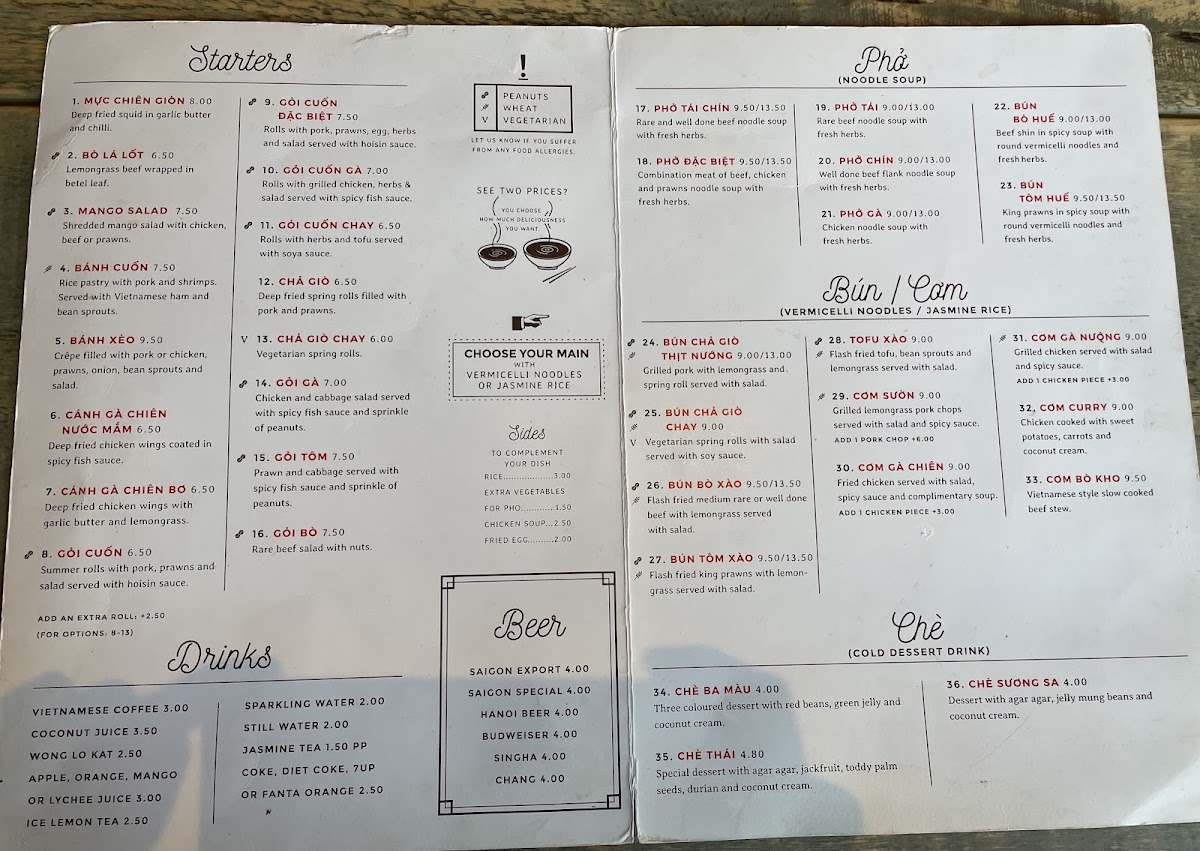 Starters
1. MỰC CHIÊN GIÒN 8.00
Deep fried squid in garlic butter
and chilli.
2. BÒ LÁ LỐT 6.50
Lemongrass beef wrapped in
betel leaf.
3. MANGO SALAD 7.50
Shredded mango salad with chicken,
beef or prawns.
4. BÁNH CUỐN 7.50
Rice pastry with pork and shrimps.
Served with Vietnamese ham and
bean sprouts.
5. BÁNH XÈO 9.50
Crêpe filled with pork or chicken,
prawns, onion, bean sprouts and
salad.
6. CÁNH GÀ CHIÊN
NƯỚC MẮM 6.50
Deep fried chicken wings coated in
spicy fish sauce.
7. CÁNH GÀ CHIÊN BƠ 6.50
Deep fried chicken wings with
garlic butter and lemongrass.
8. GỎI CUỐN 6.50
Summer rolls with pork, prawns and
salad served with hoisin sauce.
ADD AN EXTRA ROLL: +2.50
(FOR OPTIONS: 8-13)
9. GỎI CUỐN
ĐẶC BIỆT 7.50
Rolls with pork, prawns, egg, herbs
and salad served with hoisin sauce.
10. GỎI CUỐN GÀ 7.00
Rolls with grilled chicken, herbs &
salad served with spicy fish sauce.
11. GỎI CUỐN CHAY 6.50
Rolls with herbs and tofu served
with soya sauce.
12. CHẢ GIÒ 6.50
Deep fried spring rolls filled with
pork and prawns.
V 13. CHẢ GIÒ CHAY 6.00
Vegetarian spring rolls.
14. GỎI GÀ 7.00
Chicken and cabbage salad served
with spicy fish sauce and sprinkle
of peanuts.
15. GỎI TÔM 7.50
Prawn and cabbage served with
spicy fish sauce and sprinkle of
peanuts.
16. GỎI BÒ 7.50
Rare beef salad with nuts.
!
PEANUTS
WHEAT
V VEGETARIAN
LET US KNOW IF YOU SUFFER
FROM ANY FOOD ALLERGIES.
SEE TWO PRICES?
YOU CHOOSE
HOW MUCH DELICIOUSNESS
YOU WANT.
CHOOSE YOUR MAIN
WITH
VERMICELLI NOODLES
OR JASMINE RICE
Sides
TO COMPLEMENT
YOUR DISH
RICE...................3.00
EXTRA VEGETABLES
FOR PHO.............1.50
CHICKEN SOUP...2.50
FRIED EGG..........2.00
Drinks
VIETNAMESE COFFEE 3.00
COCONUT JUICE 3.50
WONG LO KAT 2.50
APPLE, ORANGE, MANGO
OR LYCHEE JUICE 3.00
ICE LEMON TEA 2.50
SPARKLING WATER 2.00
STILL WATER 2.00
JASMINE TEA 1.50 PP
COKE, DIET COKE, 7UP
OR FANTA ORANGE 2.50
Beer
SAIGON EXPORT 4.00
SAIGON SPECIAL 4.00
HANOI BEER 4.00
BUDWEISER 4.00
SINGHA 4.00
CHANG 4.00
Phở
(NOODLE SOUP)
17. PHỞ TÁI CHÍN 9.50/13.50
Rare and well done beef noodle soup
with fresh herbs.
18. PHỞ ĐẶC BIỆT 9.50/13.50
Combination meat of beef, chicken
and prawns noodle soup with
fresh herbs.
19. PHỞ TÁI 9.00/13.00
Rare beef noodle soup with
fresh herbs.
20. PHỞ CHÍN 9.00/13.00
Well done beef flank noodle soup
with fresh herbs.
21. PHỞ GÀ 9.00/13.00
Chicken noodle soup with
fresh herbs.
22. BÚN
BÒ HUẾ 9.00/13.00
Beef shin in spicy soup with
round vermicelli noodles and
fresh herbs.
23. BÚN
TÔM HUẾ 9.50/13.50
King prawns in spicy soup with
round vermicelli noodles and
fresh herbs.
Bún / Cơm
(VERMICELLI NOODLES / JASMINE RICE)
24. BÚN CHẢ GIÒ
THỊT NƯỚNG 9.00/13.00
Grilled pork with lemongrass and
spring roll served with salad.
25. BÚN CHẢ GIÒ
CHAY 9.00
V Vegetarian spring rolls with salad
served with soy sauce.
26. BÚN BÒ XÀO 9.50/13.50
Flash fried medium rare or well done
beef with lemongrass served
with salad.
27. BÚN TÔM XÀO 9.50/13.50
Flash fried king prawns with lemon-
grass served with salad.
28. TOFU XÀO 9.00
Flash fried tofu, bean sprouts and
lemongrass served with salad.
29. CƠM SƯỜN 9.00
Grilled lemongrass pork chops
served with salad and spicy sauce.
ADD 1 PORK CHOP +6.00
30. CƠM GÀ CHIÊN 9.00
Fried chicken served with salad,
spicy sauce and complimentary soup.
ADD 1 CHICKEN PIECE +3.00
31. CƠM GÀ NƯỘNG 9.00
Grilled chicken served with salad
and spicy sauce.
ADD 1 CHICKEN PIECE +3.00
32, CƠM CURRY 9.00
Chicken cooked with sweet
potatoes, carrots and
coconut cream.
33. CƠM BÒ KHO 9.50
Vietnamese style slow cooked
beef stew.
Chè
(COLD DESSERT DRINK)
34. CHÈ BA MÀU 4.00
Three coloured dessert with red beans, green jelly and
coconut cream.
35. CHÈ THÁI 4.80
Special dessert with agar agar, jackfruit, toddy palm
seeds, durian and coconut cream.
36. CHÈ SƯƠNG SA 4.00
Dessert with agar agar, jelly mung beans and
coconut cream.